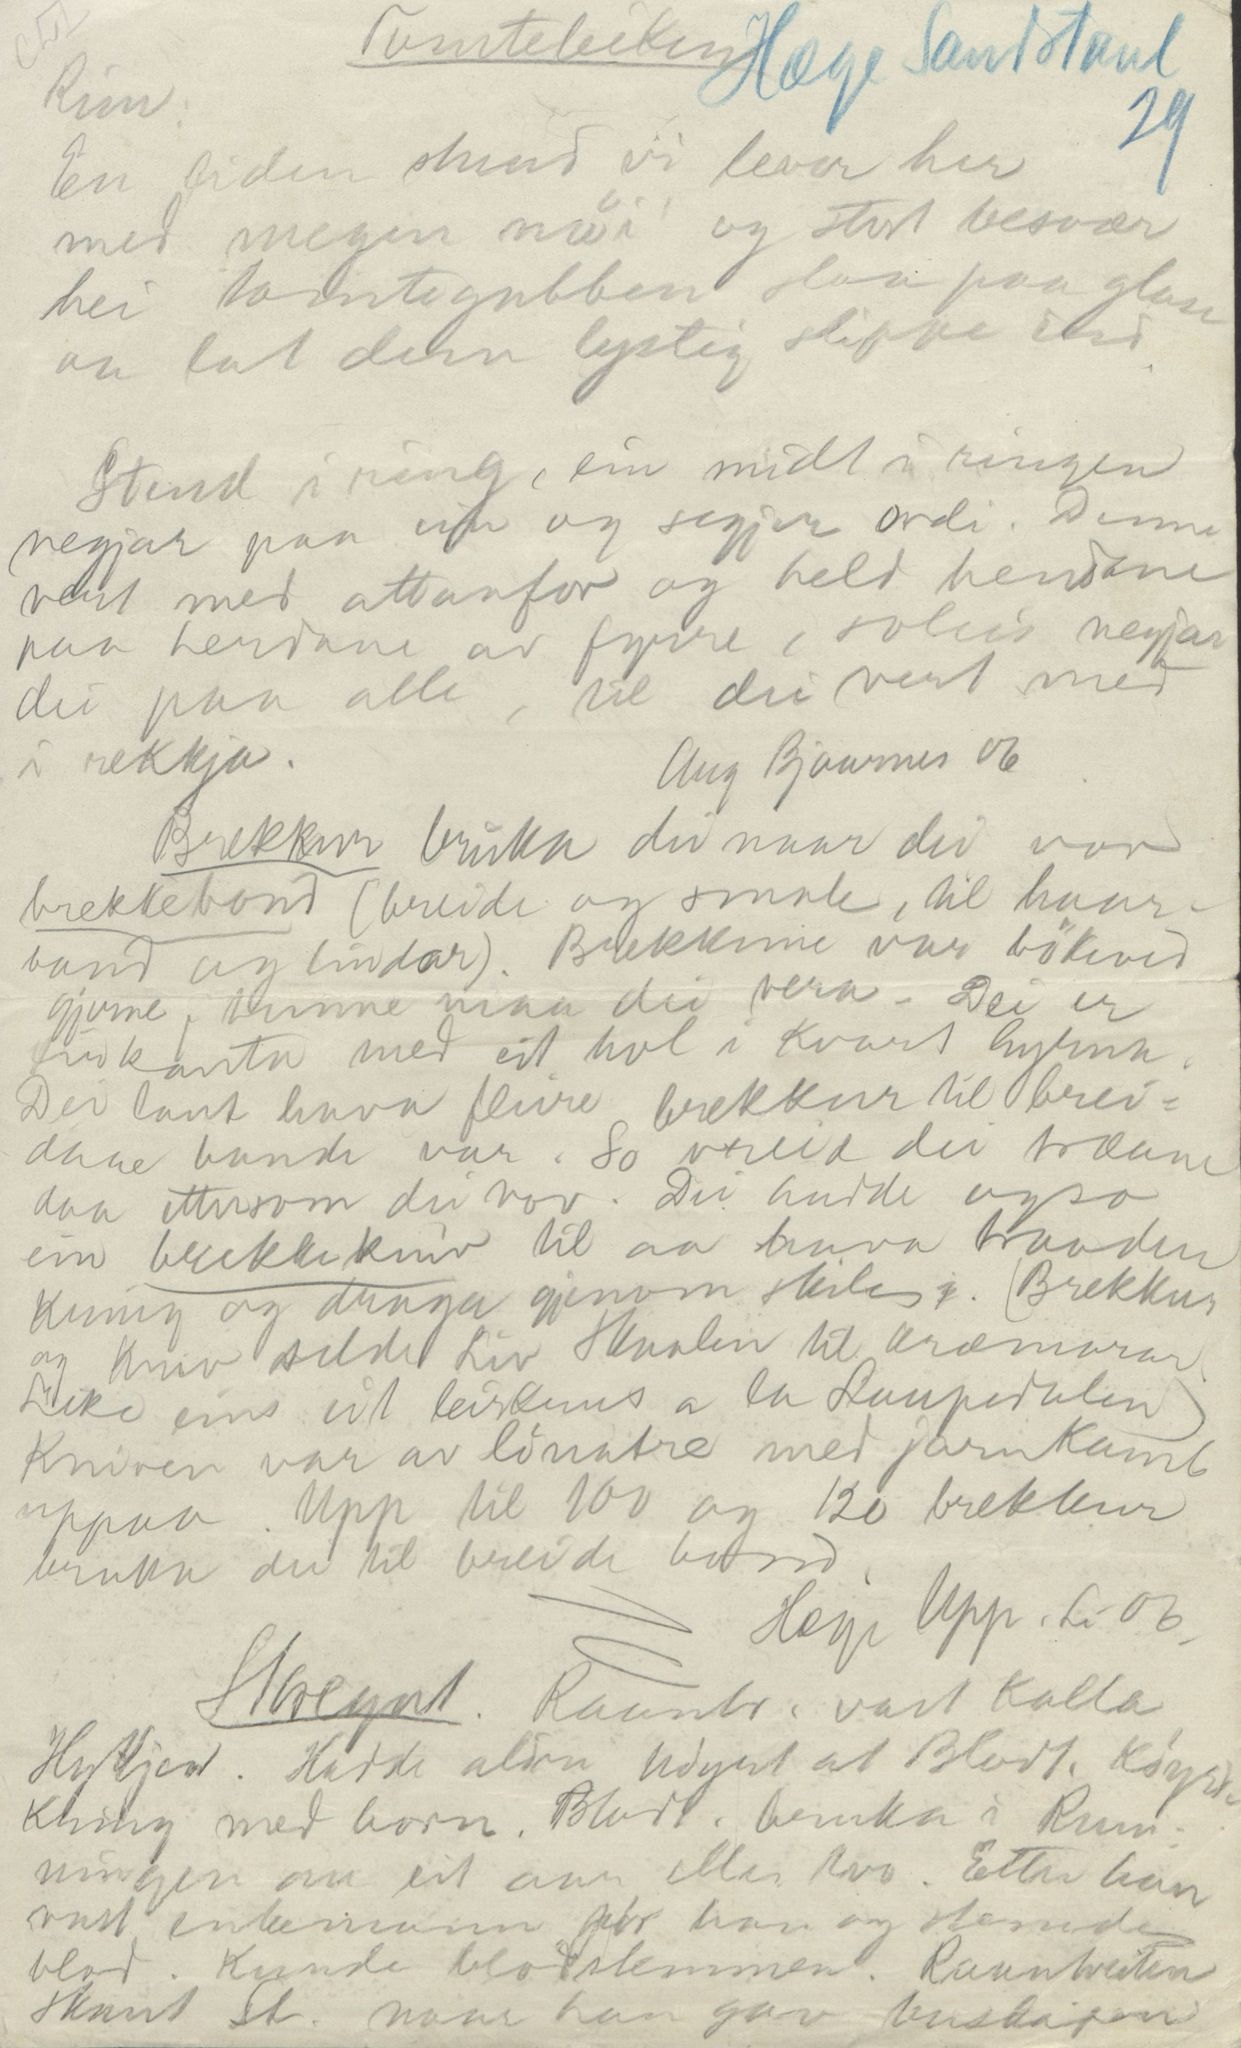 Tomteleiken Hæge Sandstaul
29
Rim:
En liden stund vi lever her
med megen nöi og stort besvær
hei tomtegubben slaa paa glase
aa lat dem lystig slippe ind.
Stend i ring, ein midt i ringen
negjar paa ein og segjer ordi. Denne
vert med attanfor og held hendane
paa herdane av fyrre, soleis negjar
dei paa alle, til dei vert med
i rekkja.
Aug Bjaarnes 06
Brekkur bruka dei naar dei vov
brekkeband (breide og smale, til haar-
band og lindar). Brekkune var bökeved
gjerne, tunne maa dei vera. Dei er
firkanta med eit hol i kvart hyrna.
Dei laut hava fleire brekkur til brei-
dare bande var. So vreid dei trædane
daa ettersom dei vov. Dei hadde ogso
ein brekkekniv til aa hava traaden
kring og draga gjenom skile i. (Brekkur
og kniv selde Liv Skaalen til kræmarar.
Like eins eit leirkrus a la Raupedalen)
Kniven var av lönatre med jarnkamb
uppaa. Upp til 100 og 120 brekkur
bruka dei til breide band.
Hæge Upp. Li 06.
Storegut. Raunbr. vart kalla
Hylkjen. Hadde alirn högst at Blodt. Köyrde
kring med born. Blodt. bruka i Run-
ningen au eit aar eller two. Etter han
vart enkemann for han og stemde
blod. Kunde blodstemmen. Raunbreiten
skaut St. naar han gav buskapen